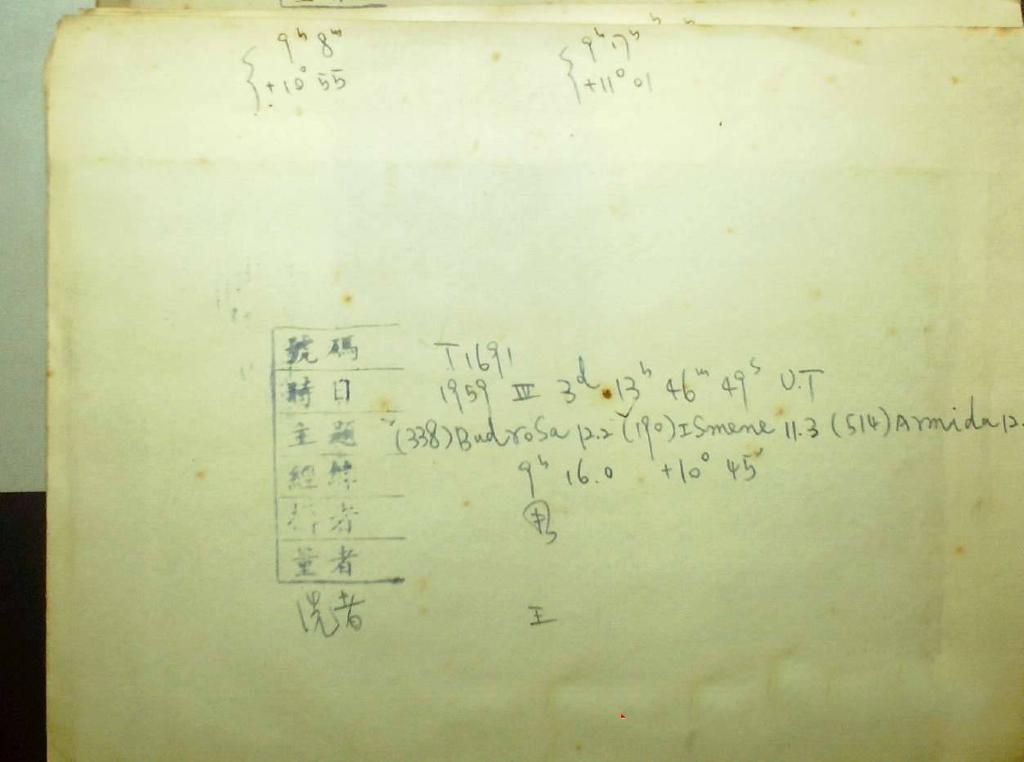 9ʰ 8ᵐ
+10° 55
9ʰ 17ᵐ
+11° 01
號碼 T1691
時日 1959 III 3ᵈ 13ʰ 46ᵐ 49ˢ U.T
主題 (338) Budrosa 12.2 (190) ISmene 11.3 (514) Armida 12.
經緯 9ʰ 16.0 +10° 45
者
量者
洗者 王